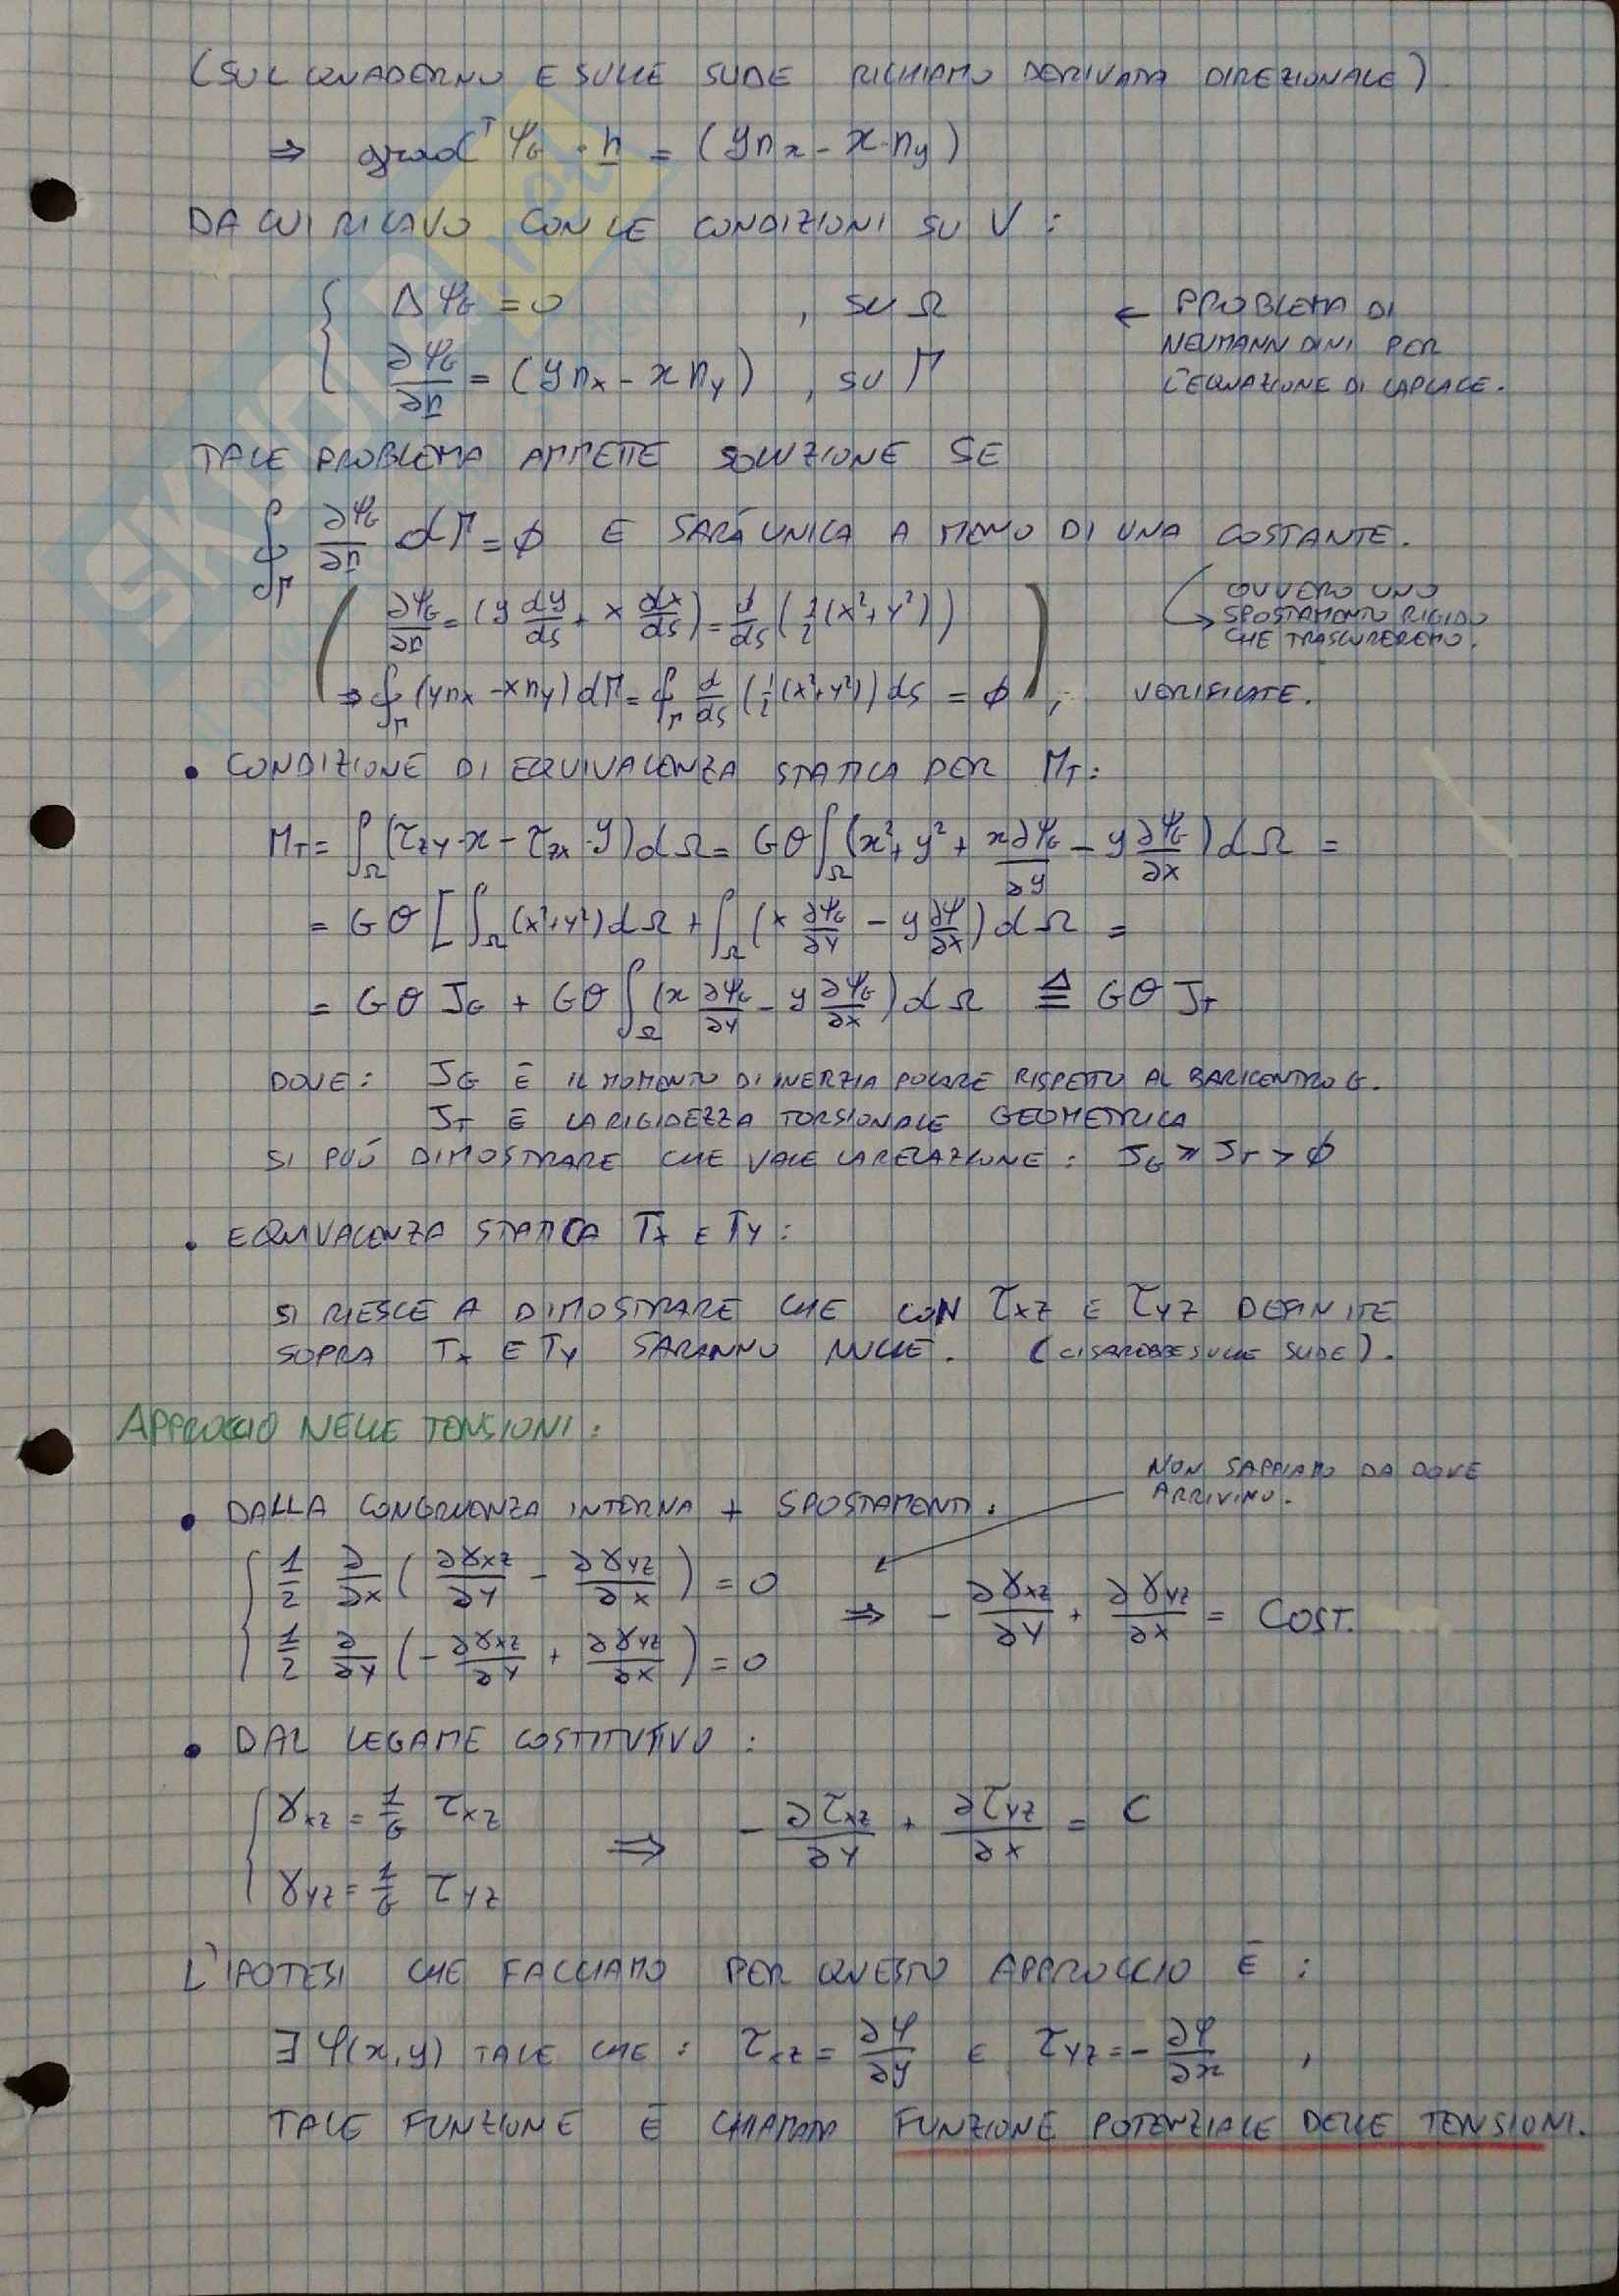 (SUL QUADERNO E SULLE SLIDE RICHIAMO DERIVATA DIREZIONALE)
⇒ grad^T ψ_G · n = (y n_x - x·n_y)
DA CUI RICAVO CON LE CONDIZIONI SU V :
{ Δψ_G = 0 , SU Ω ← PROBLEMA DI
NEUMANN DINI PER
∂ψ_G/∂n = (y n_x - x n_y) , SU Γ L'EQUAZIONE DI LAPLACE.
TALE PROBLEMA AMMETTE SOLUZIONE SE
∮_Γ ∂ψ_G/∂n dΓ = ϕ E SARÁ UNICA A MENO DI UNA COSTANTE.
OVVERO UNO
SPOSTAMENTO RIGIDO
CHE TRASCUREREMO.
( ∂ψ_G/∂n = (y dy/ds + x dx/ds) = d/ds (1/2 (x²+y²))
⇒ ∮_Γ (y n_x - x n_y) dΓ = ∮_Γ d/ds (1/2 (x²+y²)) ds = ϕ ) , VERIFICATE.
• CONDIZIONE DI EQUIVALENZA STATICA PER M_T:
M_T = ∫_Ω (τ_zy·x - τ_zx·y) dΩ = Gθ ∫_Ω (x²+y² + x ∂ψ_G/∂y - y ∂ψ_G/∂x) dΩ =
= Gθ [ ∫_Ω (x²+y²) dΩ + ∫_Ω (x ∂ψ_G/∂y - y ∂ψ/∂x) dΩ =
= Gθ J_G + Gθ ∫_Ω (x ∂ψ_G/∂y - y ∂ψ_G/∂x) dΩ ≜ Gθ J_T
DOVE : J_G È IL MOMENTO DI INERZIA POLARE RISPETTO AL BARICENTRO G.
J_T È LA RIGIDEZZA TORSIONALE GEOMETRICA
SI PUÓ DIMOSTRARE CHE VALE LA RELAZIONE : J_G ≥ J_T > ϕ
• EQUIVALENZA STATICA T_x E T_y :
SI RIESCE A DIMOSTRARE CHE CON τ_xz E τ_yz DEFINITE
SOPRA T_x E T_y SARANNO NULLE. (CI SAREBBE SULLE SLIDE).
APPROCCIO NELLE TENSIONI :
NON SAPPIAMO DA DOVE
ARRIVINO.
• DALLA CONGRUENZA INTERNA + SPOSTAMENTI :
{ 1/2 ∂/∂x ( ∂γ_xz/∂y - ∂γ_yz/∂x ) = 0 ⇒ - ∂γ_xz/∂y + ∂γ_yz/∂x = COST.
1/2 ∂/∂y ( - ∂γ_xz/∂y + ∂γ_yz/∂x ) = 0
• DAL LEGAME COSTITUTIVO :
{ γ_xz = 1/G τ_xz ⇒ - ∂τ_xz/∂y + ∂τ_yz/∂x = C
γ_yz = 1/G τ_yz
L'IPOTESI CHE FACCIAMO PER QUESTO APPROCCIO È :
∃ φ(x,y) TALE CHE : τ_xz = ∂φ/∂y E τ_yz = - ∂φ/∂x ,
TALE FUNZIONE È CHIAMATA FUNZIONE POTENZIALE DELLE TENSIONI.